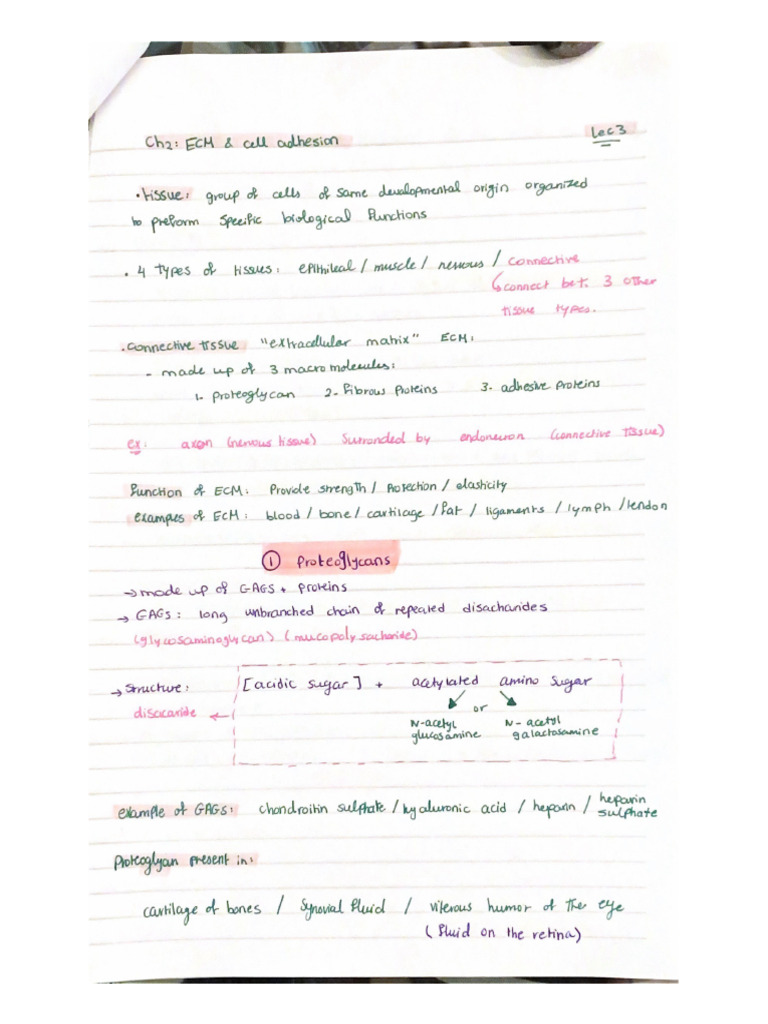 Ch2: ECM & cell adhesion
Lec 3
• tissue: group of cells of same developmental origin organized
to preform specific biological functions
• 4 types of tissues: epithileal / muscle / nervous / connective
↳ connect bet. 3 other
tissue types.
• connective tissue "extracellular matrix" ECM:
- made up of 3 macromolecules:
1- proteoglycan 2- fibrous proteins 3- adhesive proteins
ex: axon (nervous tissue) surronded by endoneuron (connective tissue)
function of ECM: provide strength / protection / elasticity
examples of ECM: blood / bone / cartilage / fat / ligaments / lymph / tendon
① Proteoglycans
→ made up of GAGs + proteins
→ GAGs: long unbranched chain of repeated disacharides
(glycosaminoglycan) (mucopolysacharide)
→ structure: [acidic sugar] + acetylated amino sugar
disacaride ←
or
N-acetyl glucosamine
N-acetyl galactosamine
example of GAGs: chondroitin sulphate / hyaluronic acid / heparin / heparin sulphate
Proteoglyan present in:
cartilage of bones / synovial fluid / viterous humor of the eye
(fluid on the retina)